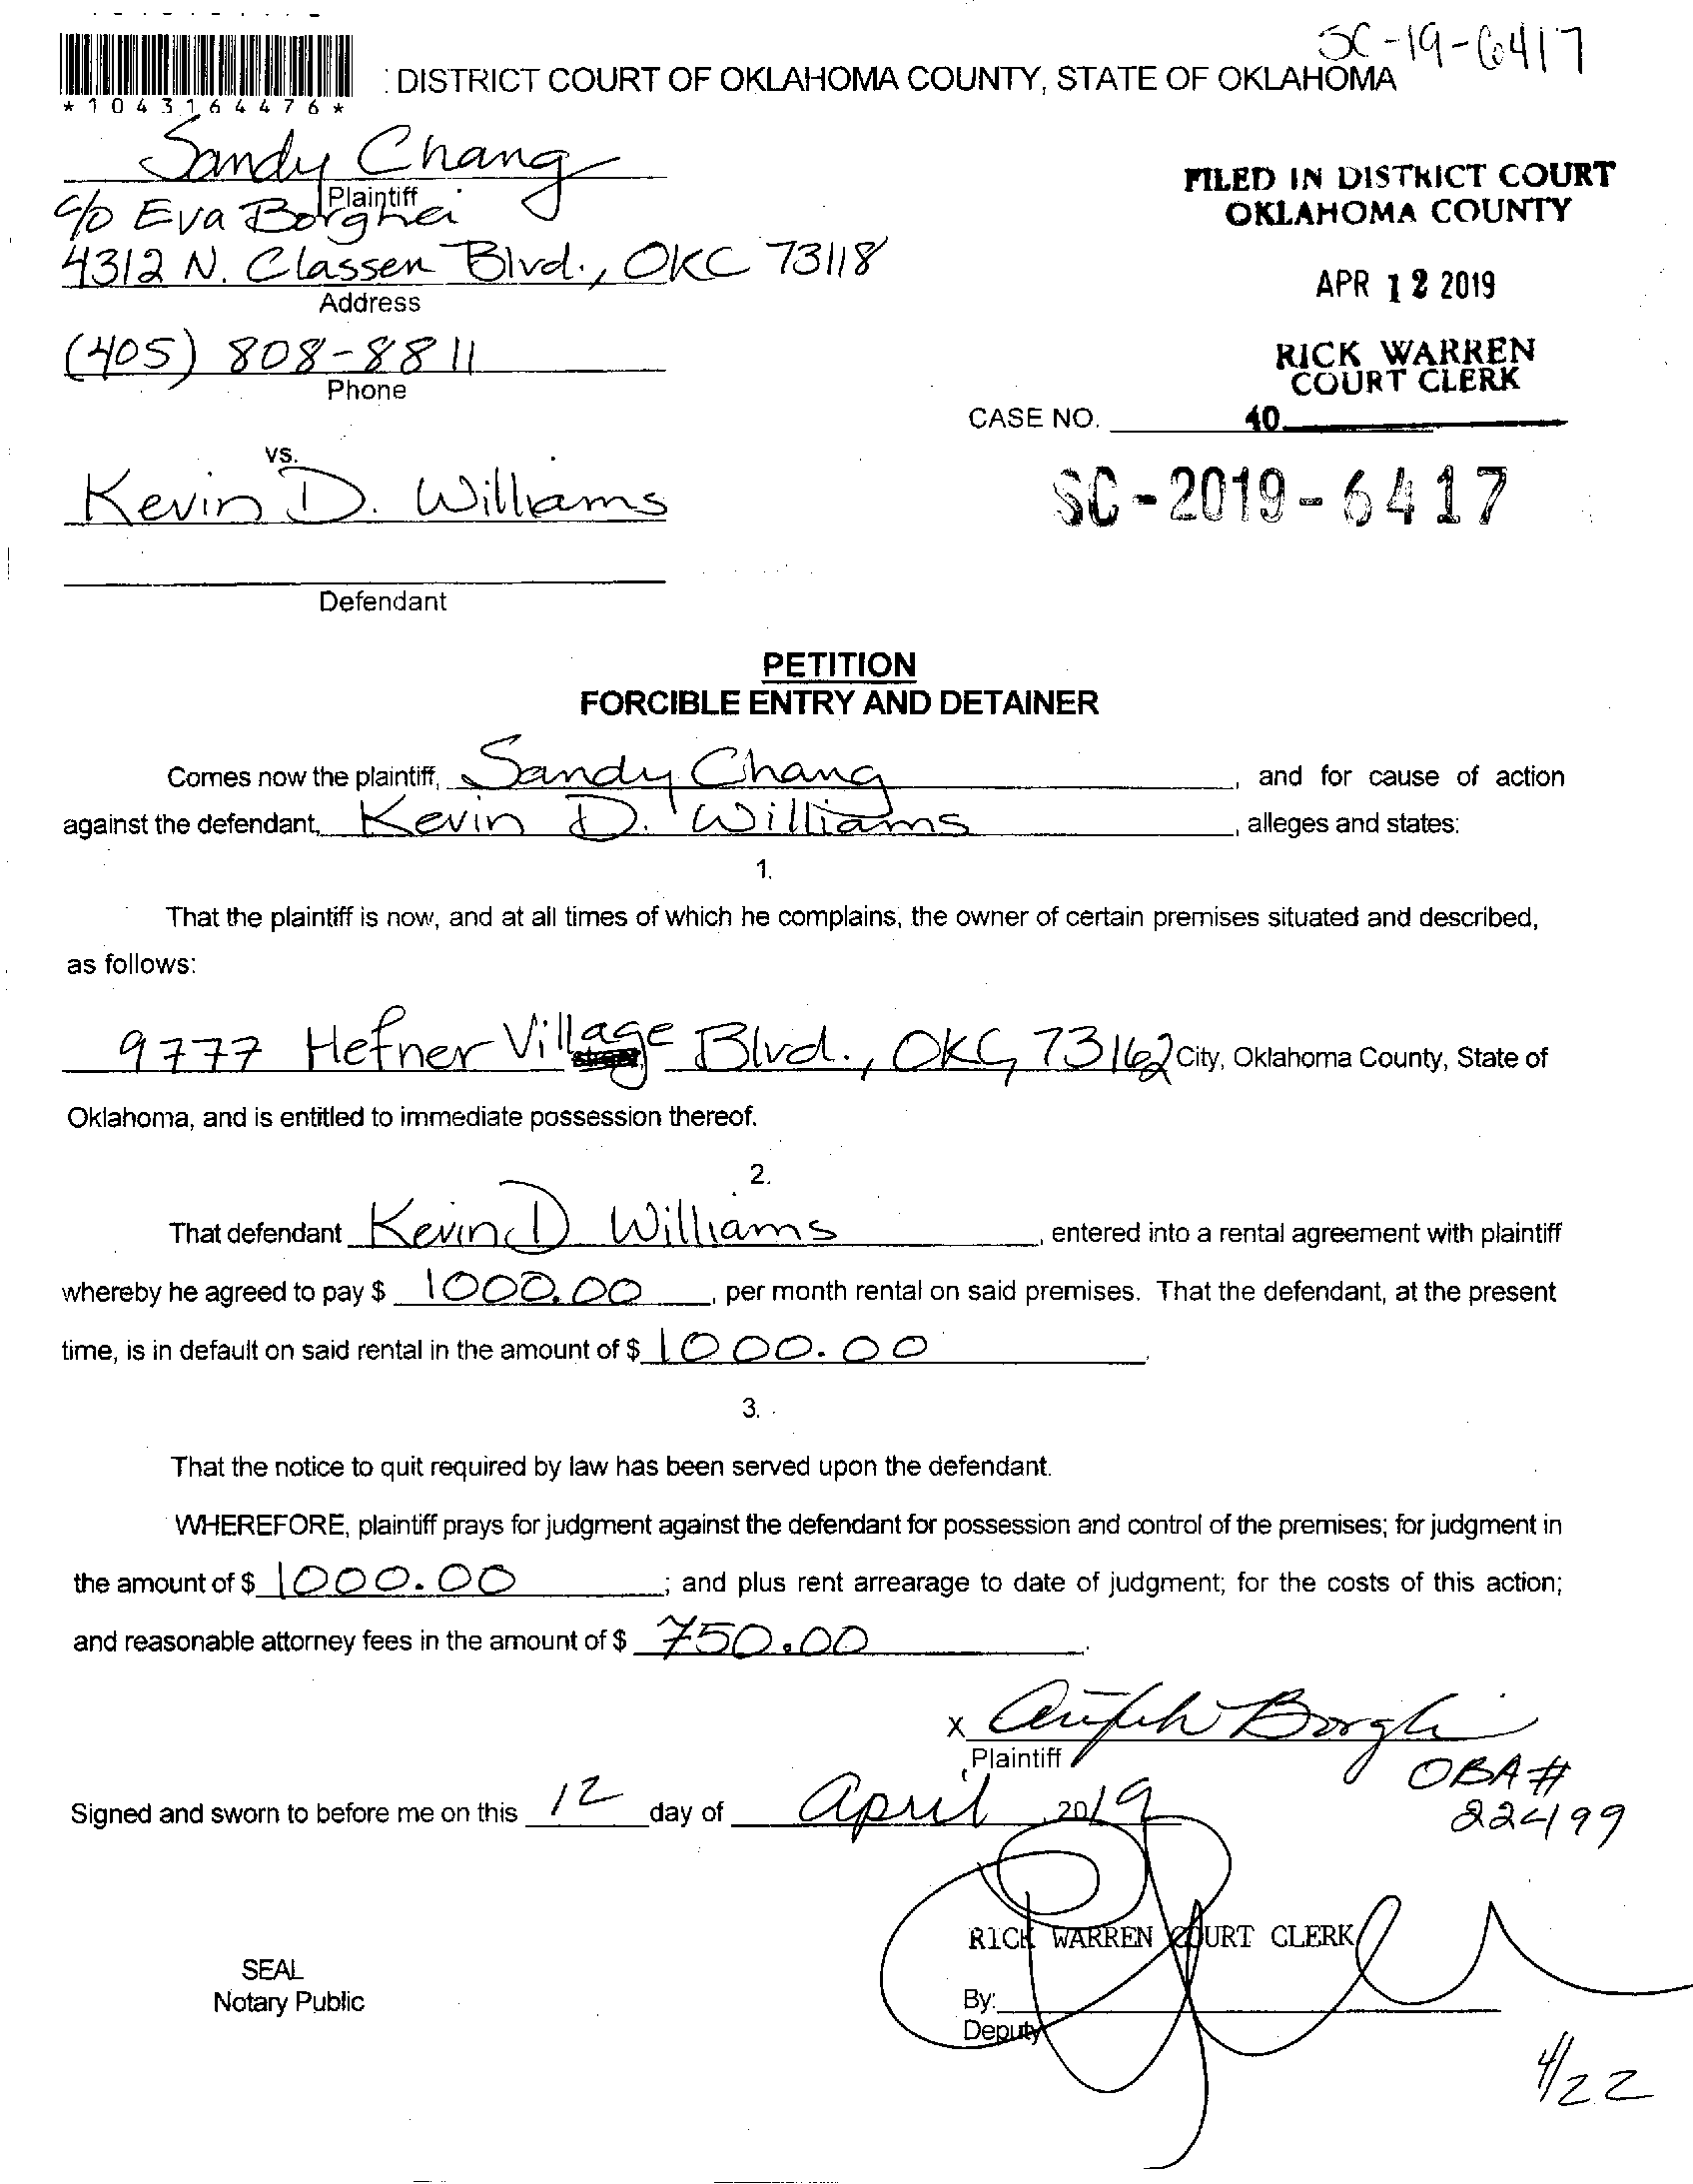 SC-19-6417
DISTRICT COURT OF OKLAHOMA COUNTY, STATE OF OKLAHOMA
*1043164476*
Sandy Chang
Plaintiff
c/o Eva Borghei
4312 N. Classen Blvd., OKC 73118
Address
(405) 808-8811
Phone
FILED IN DISTRICT COURT
OKLAHOMA COUNTY
APR 12 2019
RICK WARREN
COURT CLERK
CASE NO. 40
SC-2019-6417
vs.
Kevin D. Williams
Defendant
PETITION
FORCIBLE ENTRY AND DETAINER
Comes now the plaintiff, Sandy Chang, and for cause of action
against the defendant, Kevin D. Williams, alleges and states:
1.
That the plaintiff is now, and at all times of which he complains, the owner of certain premises situated and described,
as follows:
9777 Hefner Village Blvd., OKC, 73162 City, Oklahoma County, State of
Oklahoma, and is entitled to immediate possession thereof.
2.
That defendant Kevin D Williams, entered into a rental agreement with plaintiff
whereby he agreed to pay $ 1000.00, per month rental on said premises. That the defendant, at the present
time, is in default on said rental in the amount of $ 1000.00.
3.
That the notice to quit required by law has been served upon the defendant.
WHEREFORE, plaintiff prays for judgment against the defendant for possession and control of the premises; for judgment in
the amount of $ 1000.00; and plus rent arrearage to date of judgment; for the costs of this action;
and reasonable attorney fees in the amount of $ 750.00.
X Borghei
Plaintiff
OBA#
22499
Signed and sworn to before me on this 12 day of April, 2019
RICK WARREN COURT CLERK
SEAL
Notary Public
By:
Deputy
4/22